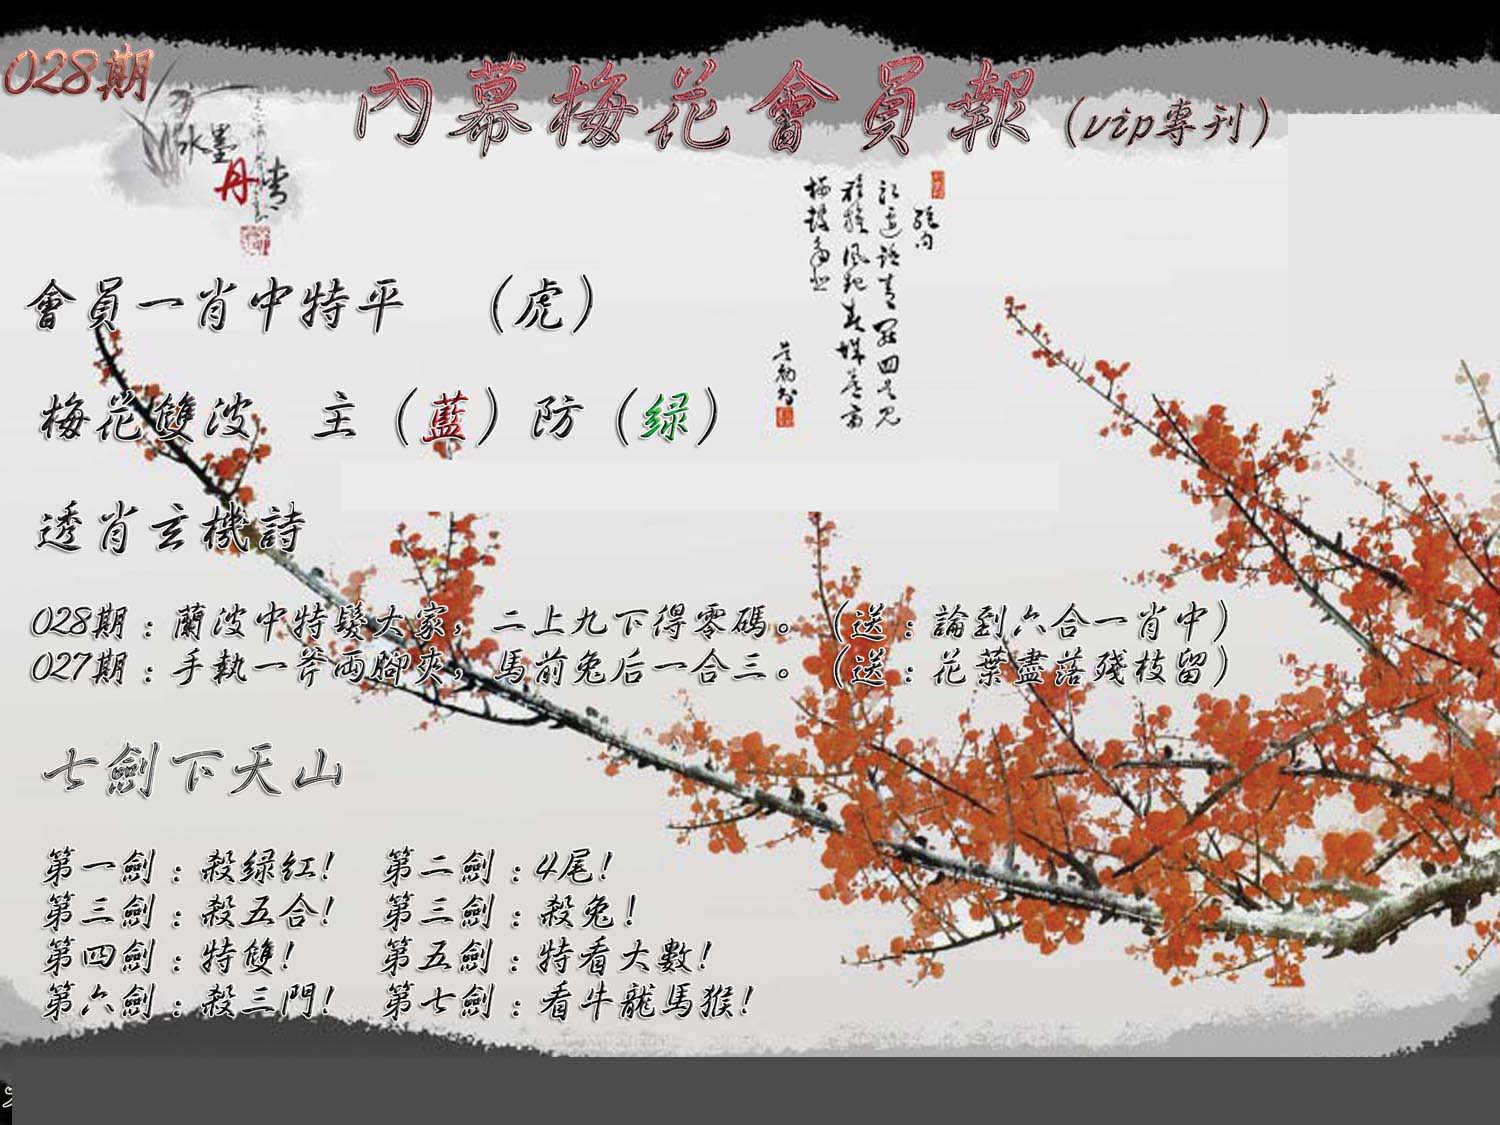 028期
內幕梅花會員報（vip專刊）
水墨
丹青
會員一肖中特平　（虎）
梅花雙波　主（藍）防（绿）
透肖玄機詩
028期：蘭波中特髮大家，二上九下得零碼。（送：論到六合一肖中）
027期：手執一斧両腳夾，馬前兔后一合三。（送：花葉盡落殘枝留）
七劍下天山
第一劍：殺绿紅！　第二劍：4尾！
第三劍：殺五合！　第三劍：殺兔！
第四劍：特雙！　第五劍：特看大數！
第六劍：殺三門！　第七劍：看牛龍馬猴！